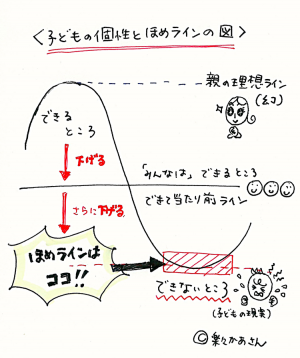 ＜子どもの個性とほめラインの図＞
親の理想ライン
(幻)
できる
ところ
下げる
「みんなは」できるところ
できて当たり前ライン
さらに下げる
ほめラインは
ココ!!
できないところ
(子どもの現実)
©楽々かあさん